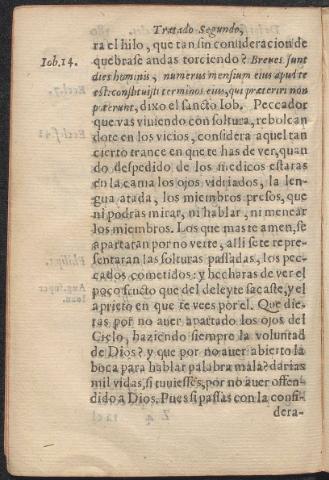 Tratado Segundo,
ra el hilo, que tan sin consideracion de
quebrase andas torciendo? Breues sunt
Iob. 14.
dies hominis, numerus mensium eius apud te
est: constituisti terminos eius, qui præteriri non
poterunt, dixo el sancto Iob. Peccador
que vas viuiendo con soltura, rebolcan
dote en los vicios, considera aquel tan
cierto trance en que te has de ver, quan
do despedido de los medicos estaras
en la cama los ojos vidriados, la len-
gua atada, los miembros presos, que
ni podras mirar, ni hablar, ni menear
los miembros. Los que mas te amen, se
apartaran por no verte, alli se te repre-
sentaran las solturas passadas, los pec-
cados cometidos: y hecharas de ver el
poco fructo que del deleyte sacaste, y el
aprieto en que te vees por el. Que die-
ras por no auer apartado los ojos del
Cielo, haziendo siempre la voluntad
de Dios? y que por no auer abierto la
boca para hablar palabra mala? darias
mil vidas, si tuuiesses, por no auer offen
dido a Dios. Pues si passas con la consi-
dera-